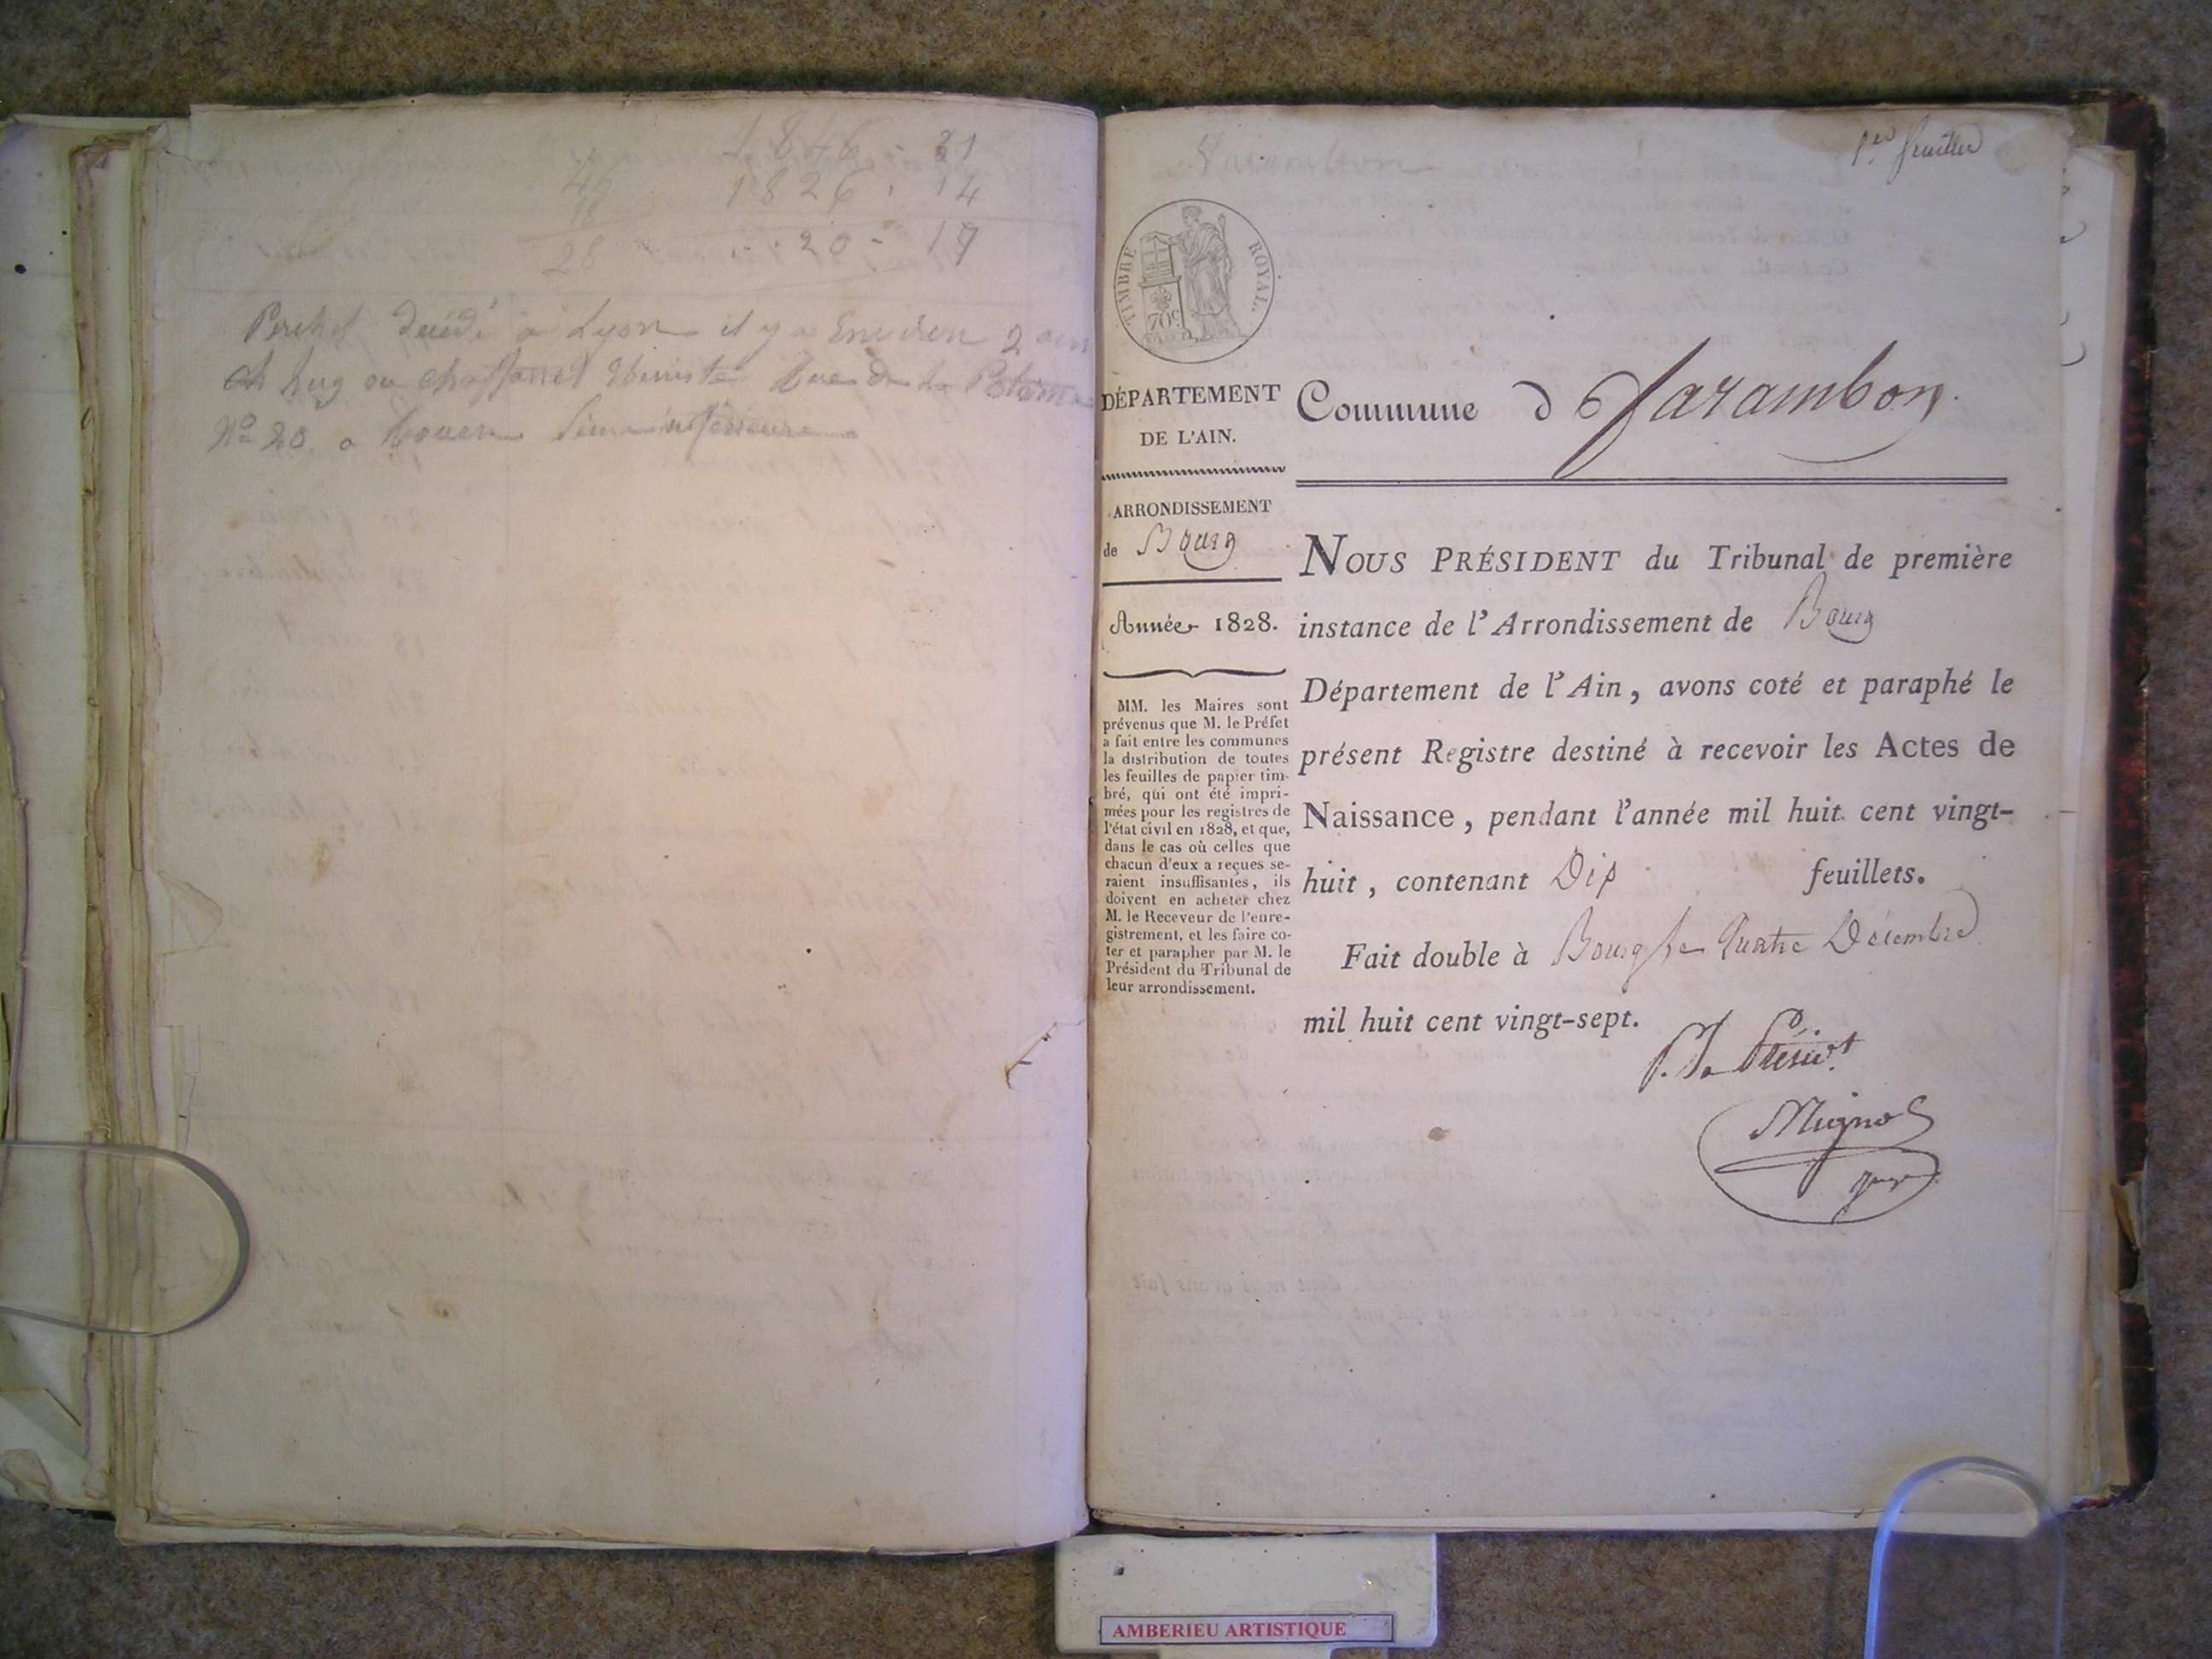 1846 31
46 1826 . 14
18
28 20 - 17
Perchet decédé à Lyon il y a Environ 2 ans
N° 20 a Rouen Seine inférieure
1er feuillet
TIMBRE ROYAL.
70c
DÉPARTEMENT
DE L'AIN.
ARRONDISSEMENT
de Bourg
Année 1828.
MM. les Maires sont
prévenus que M. le Préfet
a fait entre les communes
la distribution de toutes
les feuilles de papier tim-
bré, qui ont été impri-
mées pour les registres de
l'état civil en 1828, et que,
dans le cas où celles que
chacun d'eux a reçues se-
raient insuffisantes, ils
doivent en acheter chez
M. le Receveur de l'enre-
gistrement, et les faire co-
ter et parapher par M. le
Président du Tribunal de
leur arrondissement.
Commune de Varambon.
NOUS PRÉSIDENT du Tribunal de première
instance de l'Arrondissement de Bourg
Département de l'Ain, avons coté et paraphé le
présent Registre destiné à recevoir les Actes de
Naissance, pendant l'année mil huit cent vingt-
huit, contenant Dix feuillets.
Fait double à Bourg le Quatre Décembre
mil huit cent vingt-sept.
P. Le Présidt
Mignot
juge
AMBERIEU ARTISTIQUE